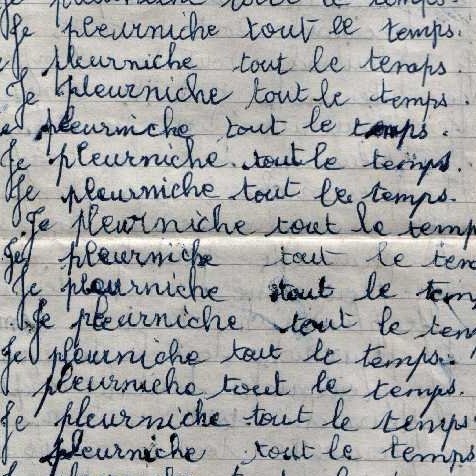 Je pleurniche tout le temps.
Je pleurniche tout le temps.
pleurniche tout le temps.
Je pleurniche tout le temps.
pleurniche tout le temps.
Je pleurniche tout le temps.
Je pleurniche tout le temps.
Je pleurniche tout le temp
Je pleurniche tout le tem
Je pleurniche tout le tem
Je pleurniche tout le tem
Je pleurniche tout le temps.
pleurniche tout le temps.
Je pleurniche tout le temps
pleurniche tout le temps